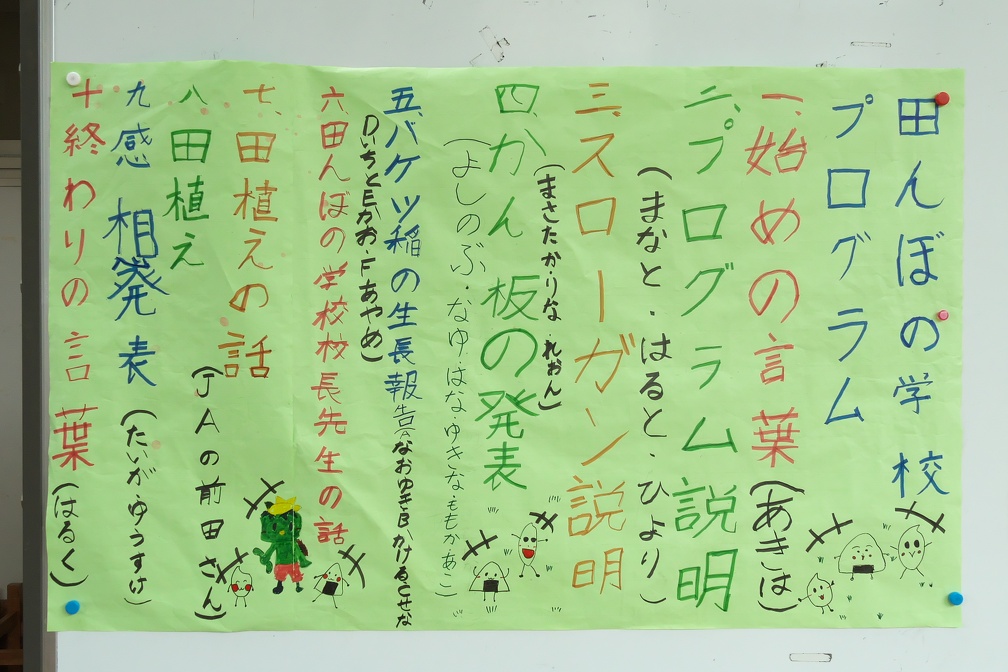 田んぼの学校
プログラム
一、始めの言葉
(あきは)
二、プログラム説明
(まなと.はると.ひより)
三、スローガン説明
(まさたか.りな れおん)
四、かん板の発表
(よしのぶ.なゆ.はな.ゆきな.ももか あこ)
五、バケツ稲の生長報告
Aなおゆき Bかける Cせな
Dいちと Eかお.Fあやめ)
六田んぼの学校校長先生の話
七、田植えの話
(JAの前田さん)
八田植え
九感相発表
(たいが.ゆうすけ)
十終わりの言葉
(はるく)